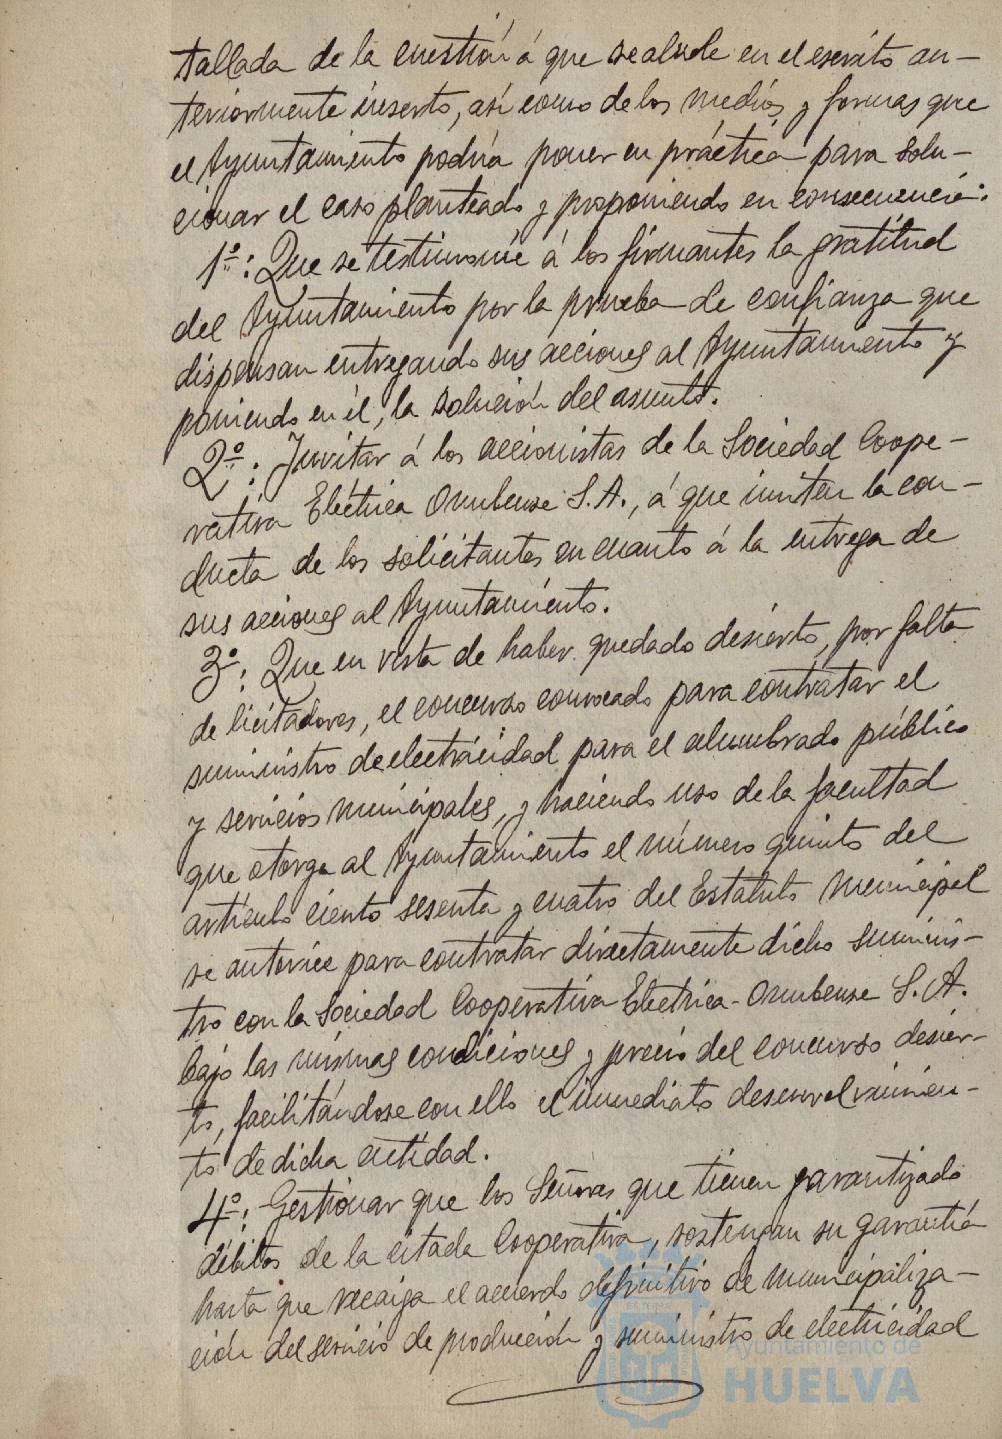 tallada de la cuestión á que se alude en el escrito an-
teriormente inserto, así como de los medios y formas que
el Ayuntamiento podría poner en práctica para solu-
cionar el caso planteado y proponiendo en consecuencia:
1º: Que se testimonie á los firmantes la gratitud
del Ayuntamiento por la prueba de confianza que
dispensan entregando sus acciones al Ayuntamiento y
poniendo en él, la solución del asunto.
2º: Invitar á los accionistas de la Sociedad Coope-
rativa Eléctrica Onubense S.A., á que imiten la con-
ducta de los solicitantes en cuanto á la entrega de
sus acciones al Ayuntamiento.
3º: Que en vista de haber quedado desierto, por falta
de licitadores, el concurso convocado para contratar el
suministro de electricidad para el alumbrado público
y servicios municipales, y haciendo uso de la facultad
que otorga al Ayuntamiento el número quinto del
artículo ciento sesenta y cuatro del Estatuto Municipal
se autorice para contratar directamente dicho suminis-
tro con la Sociedad Cooperativa Electrica-Onubense S.A.
bajo las mismas condiciones y precio del concurso desier-
to, facilitándose con ello el inmediato desenvolvimien-
to de dicha entidad.
4º: Gestionar que los Señores que tienen garantizado
débitos de la citada Cooperativa, sostengan su garantía
hasta que recaiga el acuerdo definitivo de municipaliza-
ción del servicio de producción y suministro de electricidad
Ayuntamiento de
HUELVA